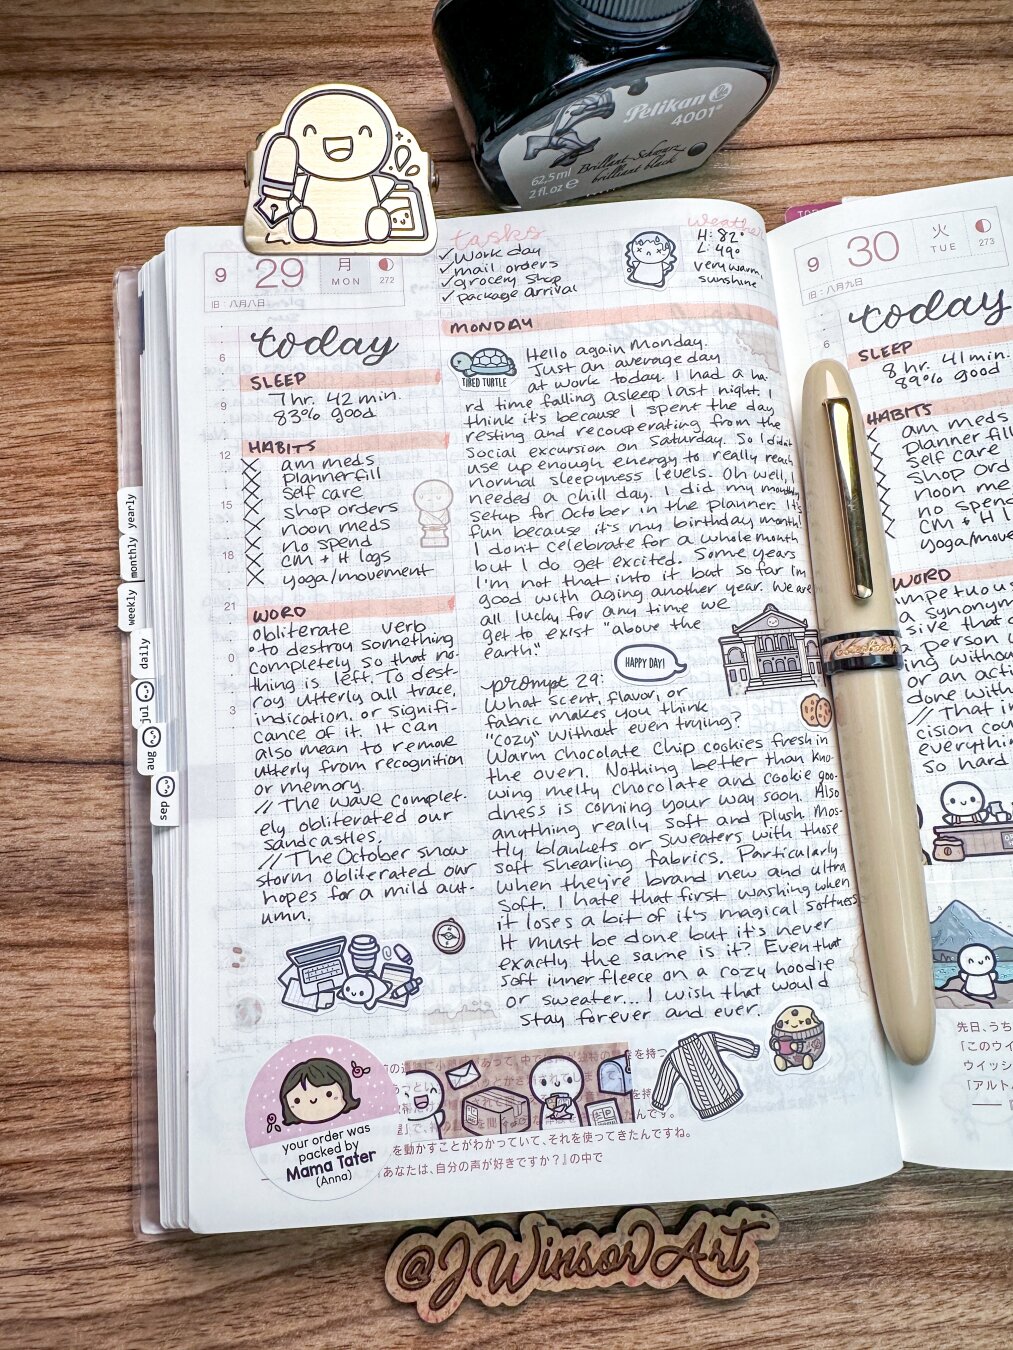 Pelikan
4001®
Brillant-Schwarz
brilliant black
62,5ml
2 fl.oz ℮
yearly
monthly
weekly
daily
jul
aug
sep
9 29 月
MON
272
旧：八月八日
tasks
✓Work day
✓mail orders
✓grocery shop
✓package arrival
Weather
H: 82°
L: 49°
very warm,
sunshine
6
9
12
15
18
21
0
3
today
SLEEP
7hr. 42 min.
83% good
HABITS
am meds
planner fill
self care
shop orders
noon meds
no spend
CM + H logs
yoga/movement
WORD
obliterate verb
• to destroy something
completely so that no-
thing is left. To dest-
roy utterly all trace,
indication, or signifi-
cance of it. It can
also mean to remove
utterly from recognition
or memory.
// The wave complet-
ely obliterated our
sandcastles.
// The October snow
storm obliterated our
hopes for a mild aut-
umn.
MONDAY
TIRED TURTLE
Hello again Monday.
Just an average day
at work today. I had a ha-
rd time falling asleep last night. I
think it's because I spent the day
resting and recouperating from the
social excursion on Saturday. So I didn't
use up enough energy to really reach
normal sleepyness levels. Oh well, I
needed a chill day. I did my monthly
setup for October in the planner. It's
fun because it's my birthday month!
I dont celebrate for a whole month
but I do get excited. Some years
I'm not that into it but so far Im
good with aging another year. We are
all lucky for any time we
get to exist "above the
earth."
HAPPY DAY!
prompt 29:
What scent, flavor, or
fabric makes you think
"cozy" without even trying?
Warm chocolate chip cookies fresh in
the oven. Nothing better than kno-
wing melty chocolate and cookie goo-
dness is coming your way soon. Also
anything really soft and plush mos-
tly blankets or sweaters with those
soft shearling fabrics. Particularly
when they're brand new and ultra
soft. I hate that first washing when
it loses a bit of it's magical softness
It must be done but it's never
exactly the same is it? Even that
soft inner fleece on a cozy hoodie
or sweater... I wish that would
stay forever and ever.
your order was
packed by
Mama Tater
(Anna)
を動かすことがわかっていて、それを使ってきたんですね。
あなたは、自分の声が好きですか？』の中で
9 30 火
TUE
273
旧：八月九日
today
SLEEP
8 hr. 41 min.
89% good
HABITS
am meds
planner fill
self care
shop ord
noon me
no spen
CM + H l
yoga/mov
WORD
mpetuou
a synonym
sive that
a person
ing withou
or an acti
done with
// That i
cision cou
everythin
so hard
先日、うち
「このウイ
ウイッシ
「アルト
@JWinsorArt